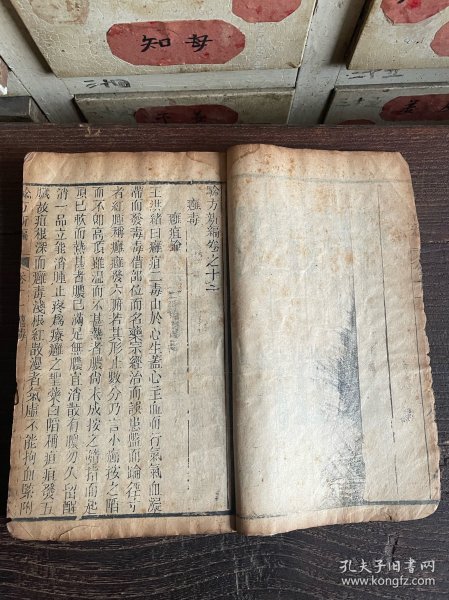 知母
騐方新編卷之十
癰毒
癰疽論
王洪緒曰癰疽二毒由於心生蓋心主血而行氣氣血凝
滯而發毒毒借部位而名藥宗經治而談患盤而論徑寸
者紅腫稱癰癰發六腑若其形止數分乃言小癤按之陷
而不即高頂雖溫而不甚熱者膿尚未成按之隨指而起
頂已軟而熱甚者膿已滿足無膿宜消散有膿勿久留醒
消一品立能消腫止疼為療癰之聖藥白陷稱疽疽發五
臟故疽根深而癰毒淺根紅散漫者氣虛不能拘血緊附
騐方新編
孔夫子旧书网
www.kongfz.com